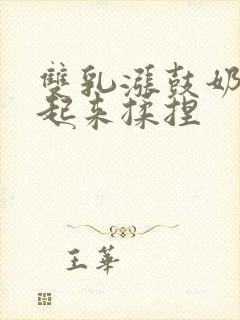 雙乳漲鼓奶
起来揉捏
王華